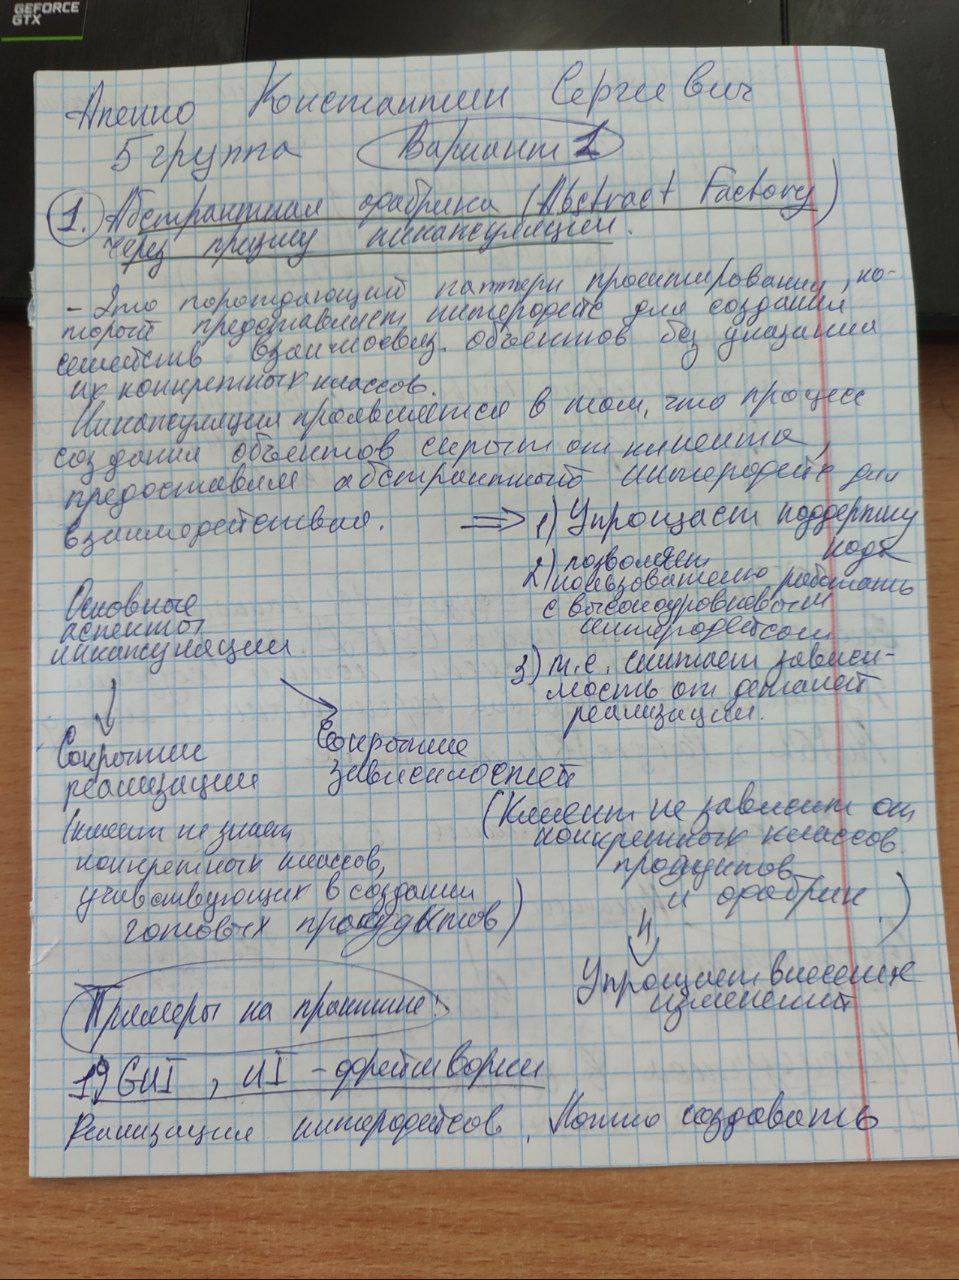 GEFORCE
GTX
Апенко Константин Сергеевич
5 группа Вариант 1
1. Абстрактная фабрика (Abstract Factory)
через призму инкапсуляции.
- Это порождающий паттерн проектирования, ко-
торый предоставляет интерфейс для создания
семейств взаимосвяз. объектов без указания
их конкретных классов.
Инкапсуляция проявляется в том, что процесс
создания объектов скрыт от клиента,
предоставляя абстрактный интерфейс для
взаимодействия. => 1) Упрощает поддержку
кода
2) позволяет
пользователю работать
с высокоуровневым
интерфейсом
3) т.е. снижает зависи-
мость от деталей
реализации.
Основные
аспекты
инкапсуляции
Сокрытие
реализации
(клиент не знает
конкретных классов,
участвующих в создании
готовых продуктов)
Сокрытие
зависимостей
(Клиент не зависит от
конкретных классов
продуктов
и фабрик)
Упрощает внесение
изменений
Примеры на практике:
1) GUI, UI - фреймворки
Реализация интерфейсов. Можно создавать